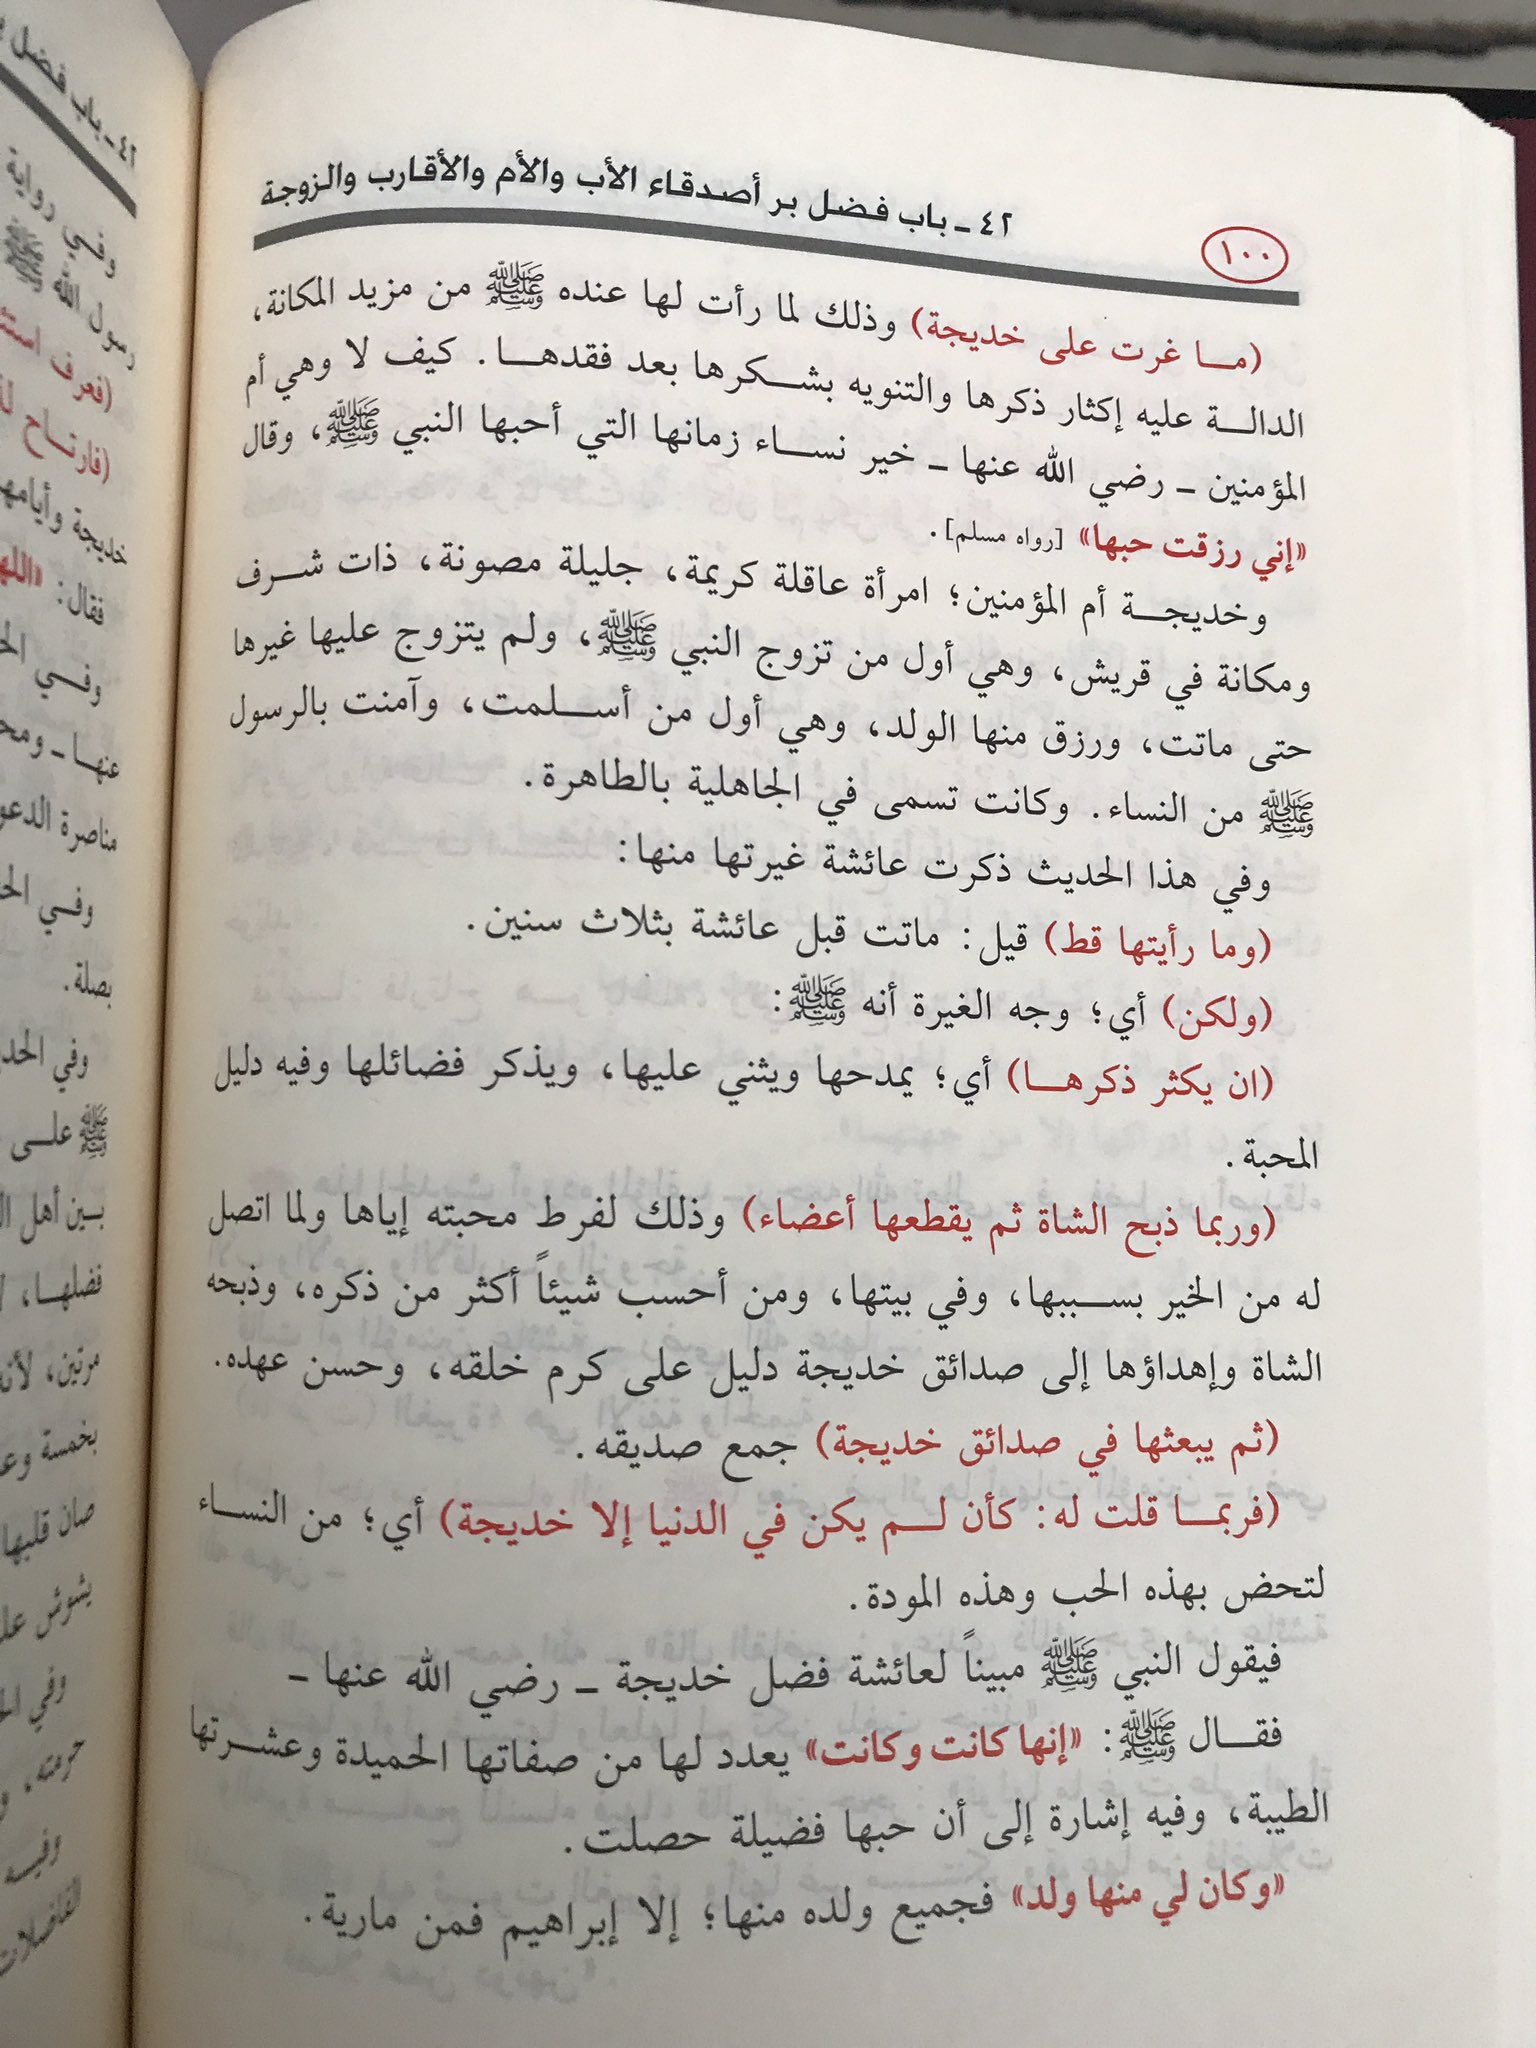 ٤٢ ـ باب فضل بر أصدقاء الأب والأم والأقارب والزوجة
١٠٠
(ما غرت على خديجة) وذلك لما رأت لها عنده ﷺ من مزيد المكانة،
الدالة عليه إكثار ذكرها والتنويه بشكرها بعد فقدها. كيف لا وهي أم
المؤمنين ـ رضي الله عنها ـ خير نساء زمانها التي أحبها النبي ﷺ، وقال
«إني رزقت حبها» [رواه مسلم].
وخديجة أم المؤمنين؛ امرأة عاقلة كريمة، جليلة مصونة، ذات شرف
ومكانة في قريش، وهي أول من تزوج النبي ﷺ، ولم يتزوج عليها غيرها
حتى ماتت، ورزق منها الولد، وهي أول من أسلمت، وآمنت بالرسول
ﷺ من النساء. وكانت تسمى في الجاهلية بالطاهرة.
وفي هذا الحديث ذكرت عائشة غيرتها منها:
(وما رأيتها قط) قيل: ماتت قبل عائشة بثلاث سنين.
(ولكن) أي؛ وجه الغيرة أنه ﷺ:
(ان يكثر ذكرها) أي؛ يمدحها ويثني عليها، ويذكر فضائلها وفيه دليل
المحبة.
(وربما ذبح الشاة ثم يقطعها أعضاء) وذلك لفرط محبته إياها ولما اتصل
له من الخير بسببها، وفي بيتها، ومن أحسب شيئاً أكثر من ذكره، وذبحه
الشاة وإهداؤها إلى صدائق خديجة دليل على كرم خلقه، وحسن عهده.
(ثم يبعثها في صدائق خديجة) جمع صديقه.
(فربما قلت له: كأن لم يكن في الدنيا إلا خديجة) أي؛ من النساء
لتحض بهذه الحب وهذه المودة.
فيقول النبي ﷺ مبيناً لعائشة فضل خديجة ـ رضي الله عنها ـ
فقال ﷺ: «إنها كانت وكانت» يعدد لها من صفاتها الحميدة وعشرتها
الطيبة، وفيه إشارة إلى أن حبها فضيلة حصلت.
«وكان لي منها ولد» فجميع ولده منها؛ إلا إبراهيم فمن مارية.